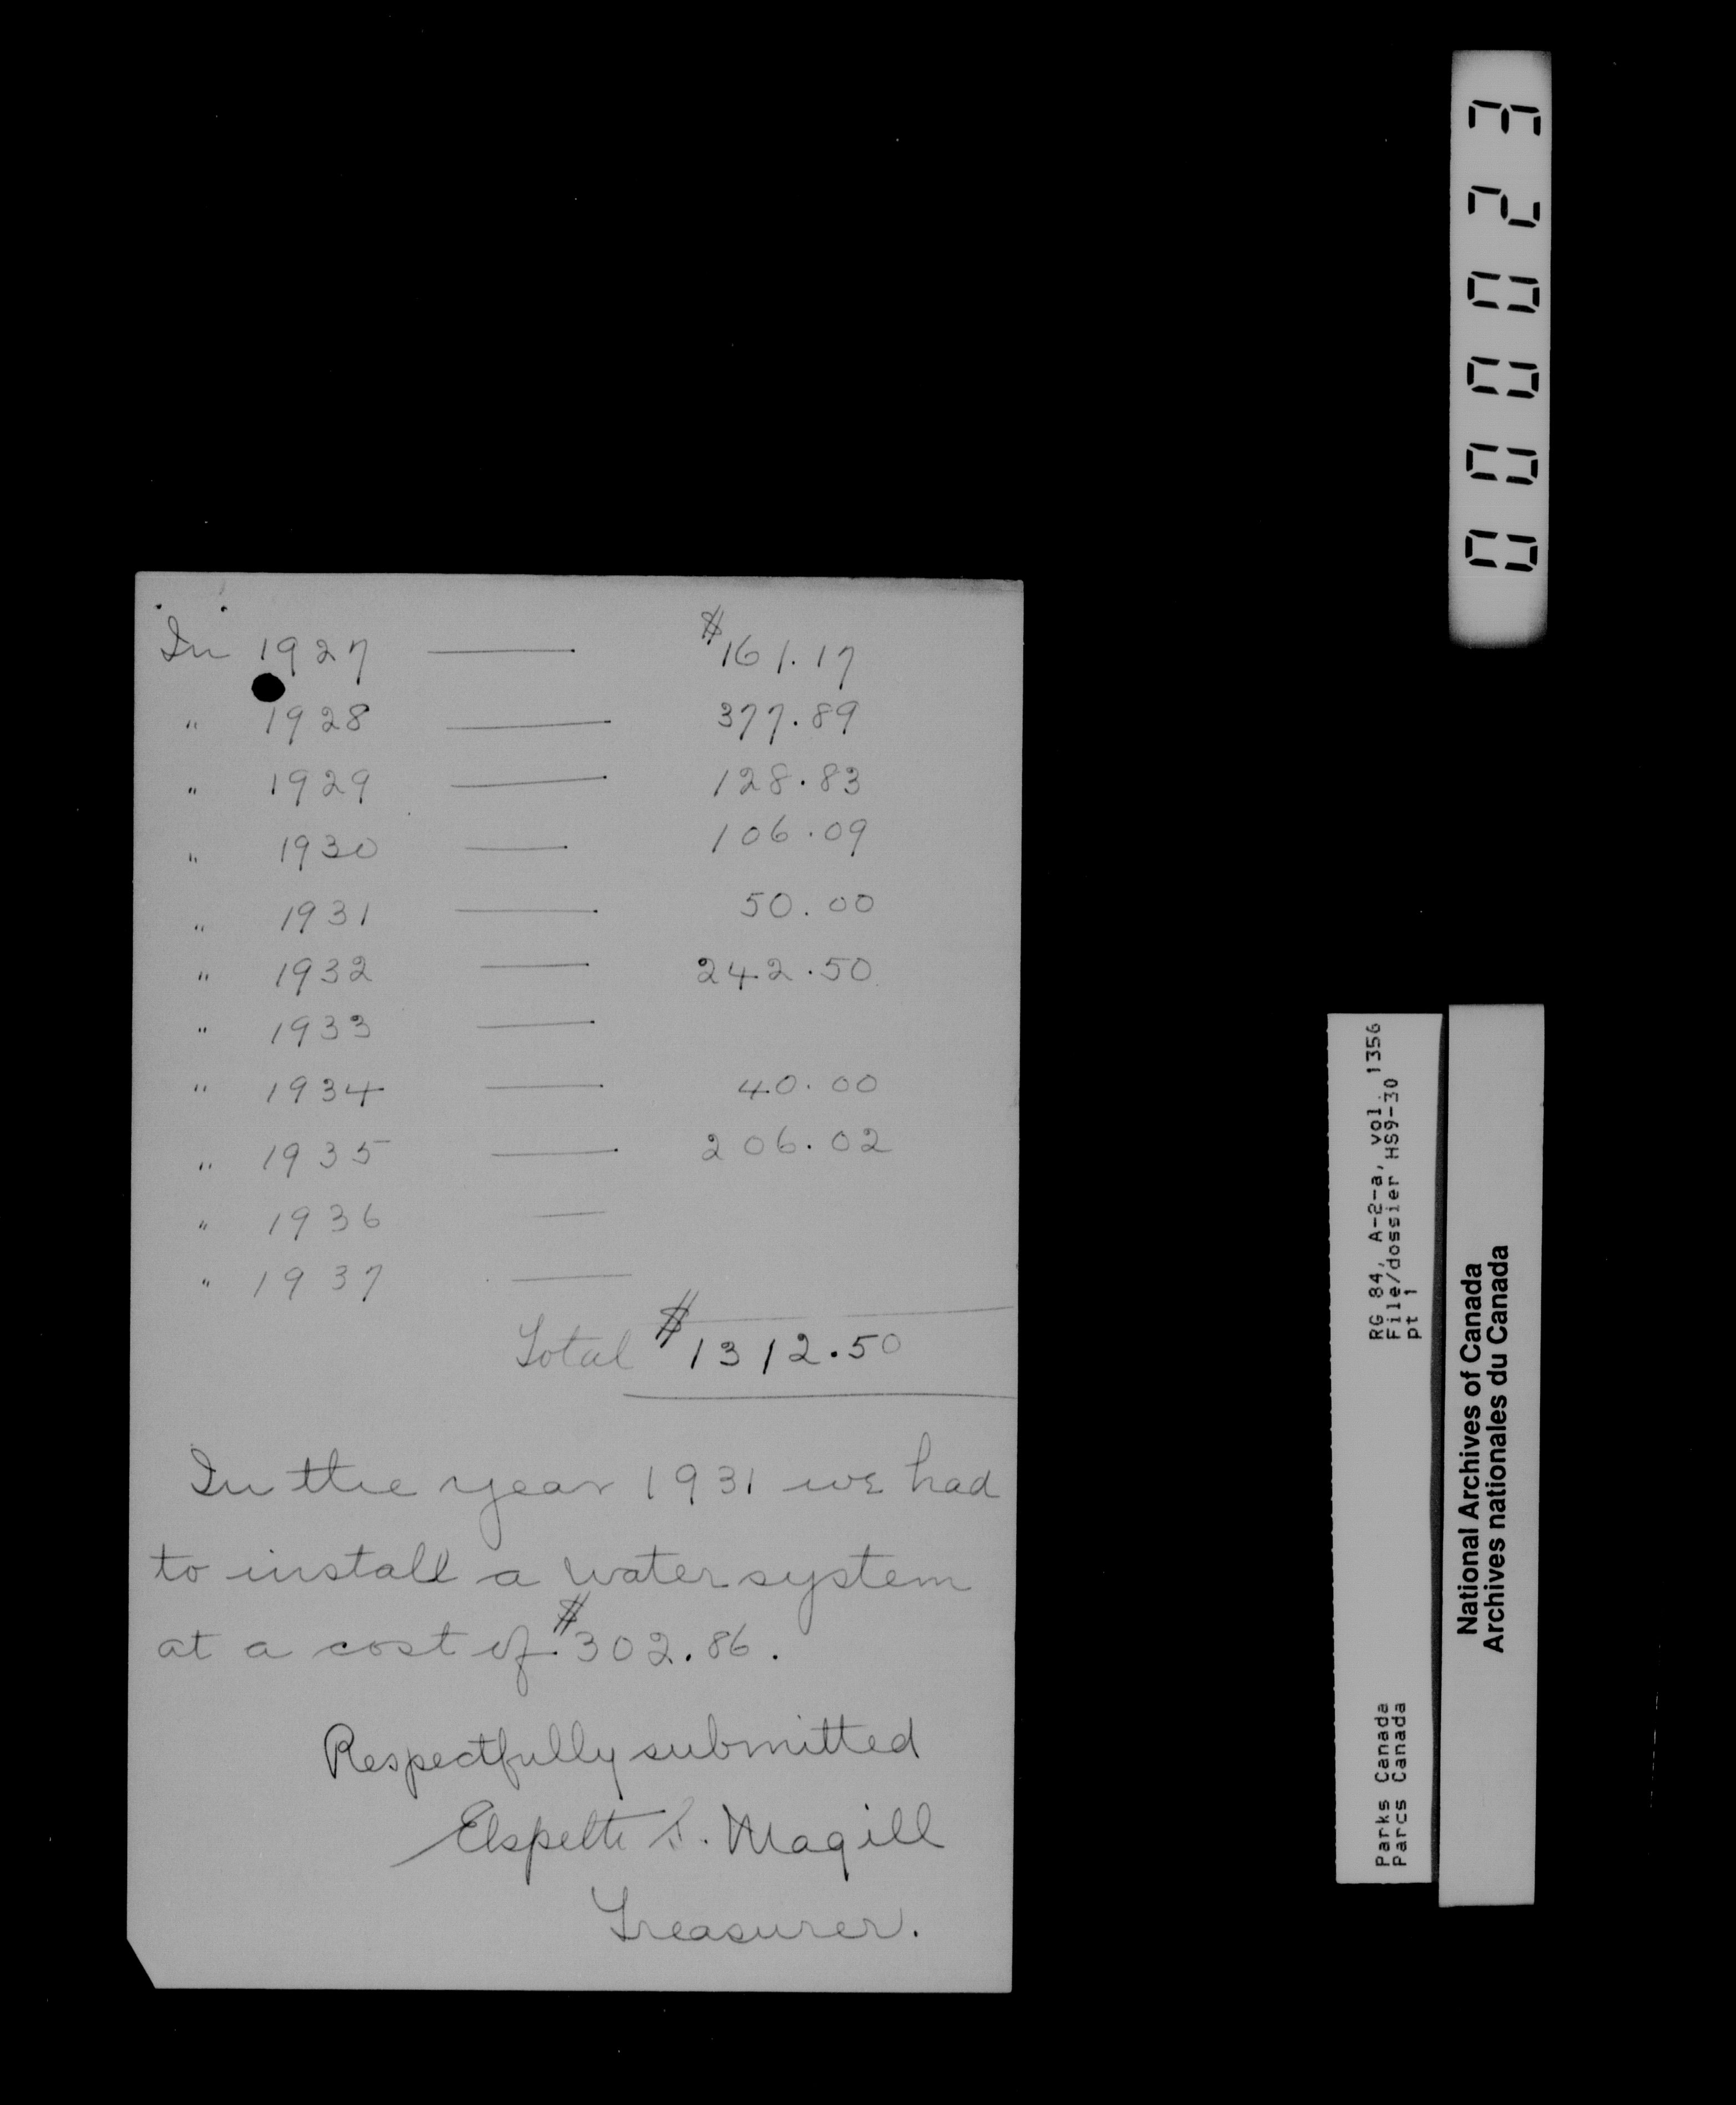 In 1927 — $161.17
" 1928 — 377.89
" 1929 — 128.83
" 1930 — 106.09
" 1931 — 50.00
" 1932 — 242.50
" 1933 —
" 1934 — 40.00
" 1935 — 206.02
" 1936 —
" 1937 —
Total $1312.50
In the year 1931 we had
to install a water system
at a cost of $302.86.
Respectfully submitted
Elspeth S. Magill
Treasurer.
000023
RG 84, A-2-a, vol. 1356
File/dossier HS9-30
pt 1
Parks Canada
Parcs Canada
National Archives of Canada
Archives nationales du Canada